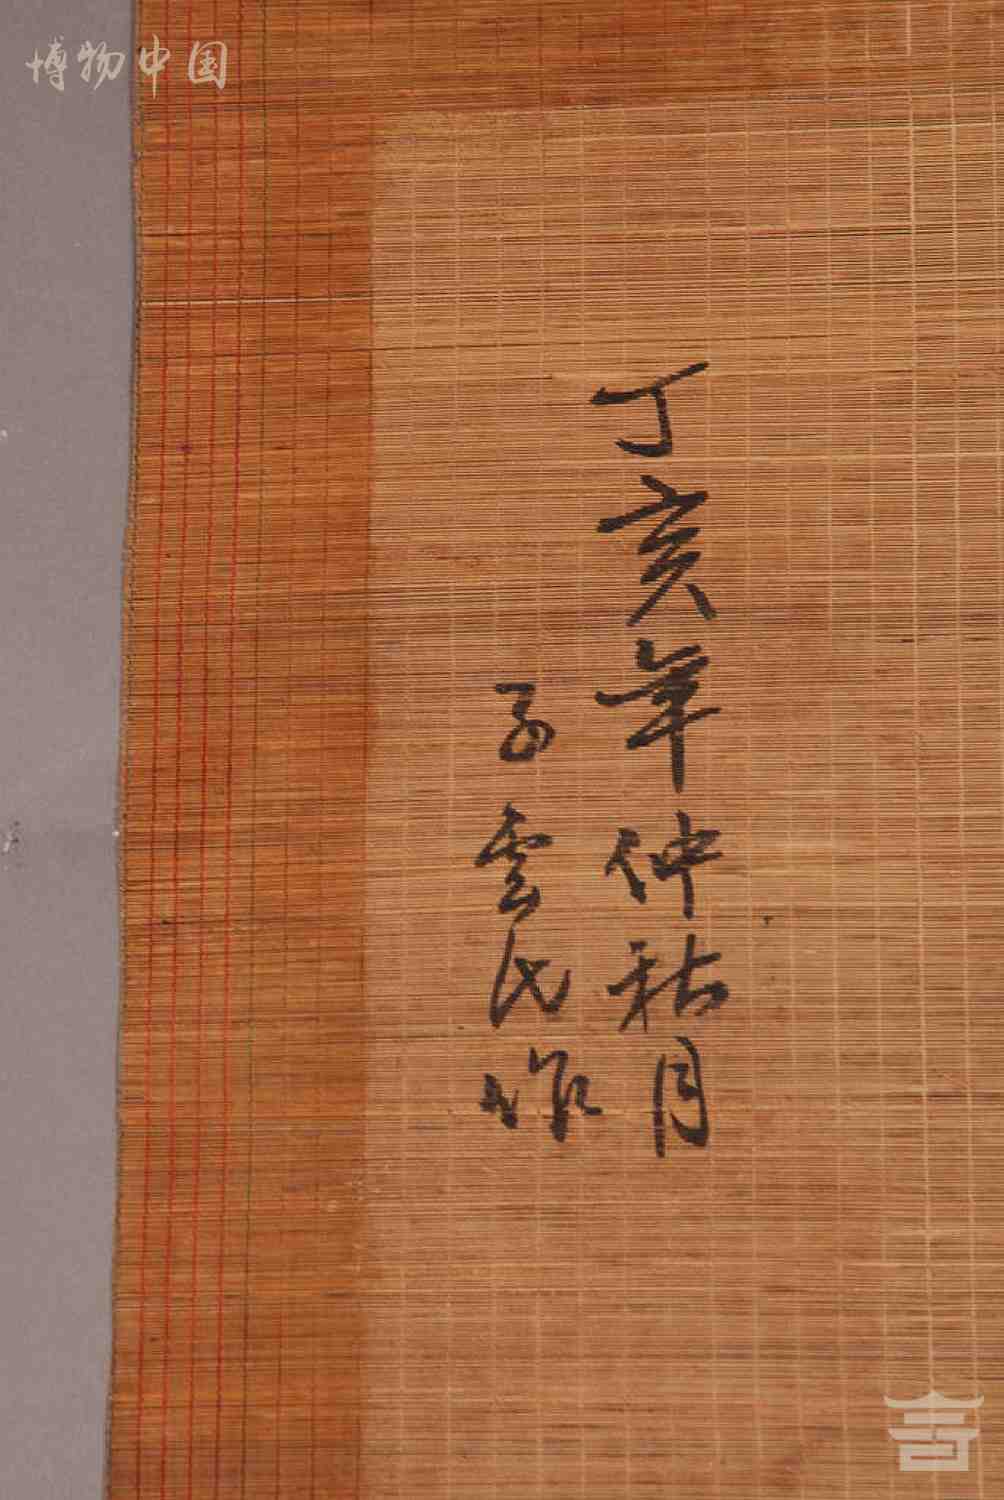 博物中国
丁亥年仲秋月
子雲氏作